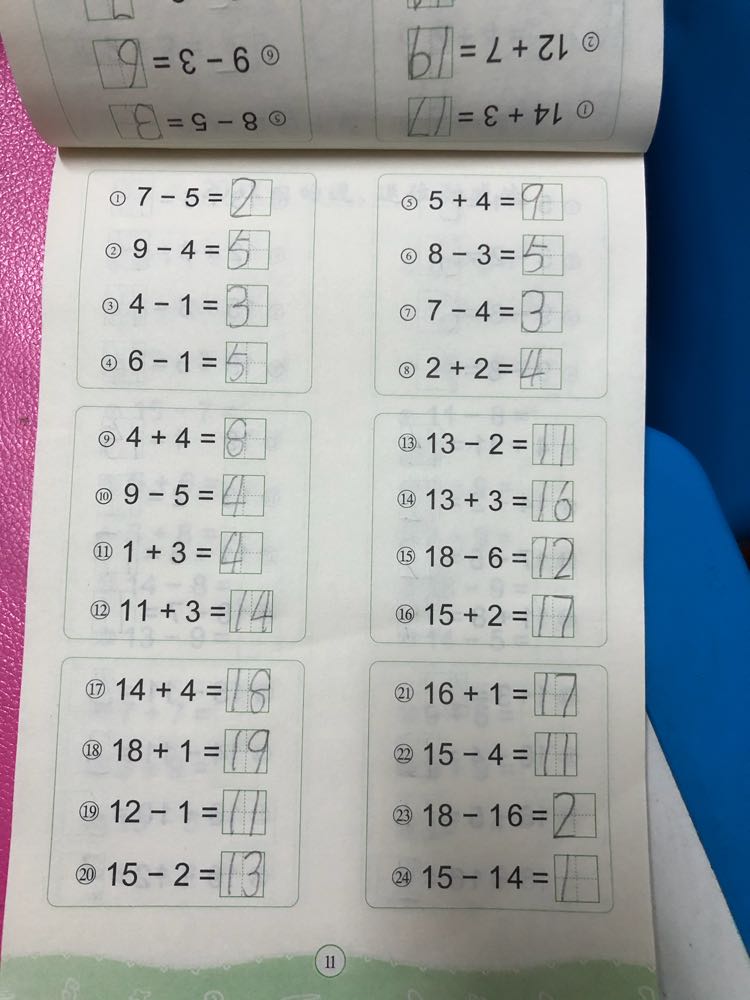 ⑥ 9 − 3 = 6
⑤ 8 − 5 = 3
② 12 + 7 = 19
① 14 + 3 = 17
① 7 − 5 = 2
② 9 − 4 = 5
③ 4 − 1 = 3
④ 6 − 1 = 5
⑤ 5 + 4 = 9
⑥ 8 − 3 = 5
⑦ 7 − 4 = 3
⑧ 2 + 2 = 4
⑨ 4 + 4 = 8
⑩ 9 − 5 = 4
⑪ 1 + 3 = 4
⑫ 11 + 3 = 14
⑬ 13 − 2 = 11
⑭ 13 + 3 = 16
⑮ 18 − 6 = 12
⑯ 15 + 2 = 17
⑰ 14 + 4 = 18
⑱ 18 + 1 = 19
⑲ 12 − 1 = 11
⑳ 15 − 2 = 13
㉑ 16 + 1 = 17
㉒ 15 − 4 = 11
㉓ 18 − 16 = 2
㉔ 15 − 14 = 1
11